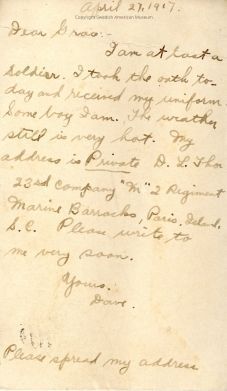 April 27, 1917.
Copyright Swedish American Museum
Dear Grace:-
I am at last a
soldier. I took the oath to-
day and received my uniform.
Some boy I am. The weather
still is very hot. My
address is Private D. L. Thor
23rd Company "M" 2 Regiment
Marine Barracks, Paris Island,
S.C. Please write to
me very soon.
Yours.
Dave.
Please spread my address